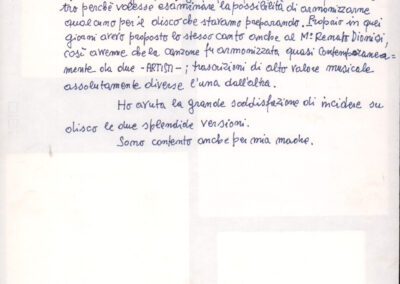 tro perché volesse esaminare la possibilità di armonizzarne
qualcuno per il disco che stavamo preparando. Proprio in quei
giorni avevo proposto lo stesso canto anche al M° Renato Dionisi,
così avvenne che la canzone fu armonizzata quasi contemporanea=
mente da due -ARTISTI-; trascrizioni di alto valore musicale
assolutamente diverse l'una dall'altra.
Ho avuta la grande soddisfazione di incidere su
disco le due splendide versioni.
Sono contento anche per mia madre.